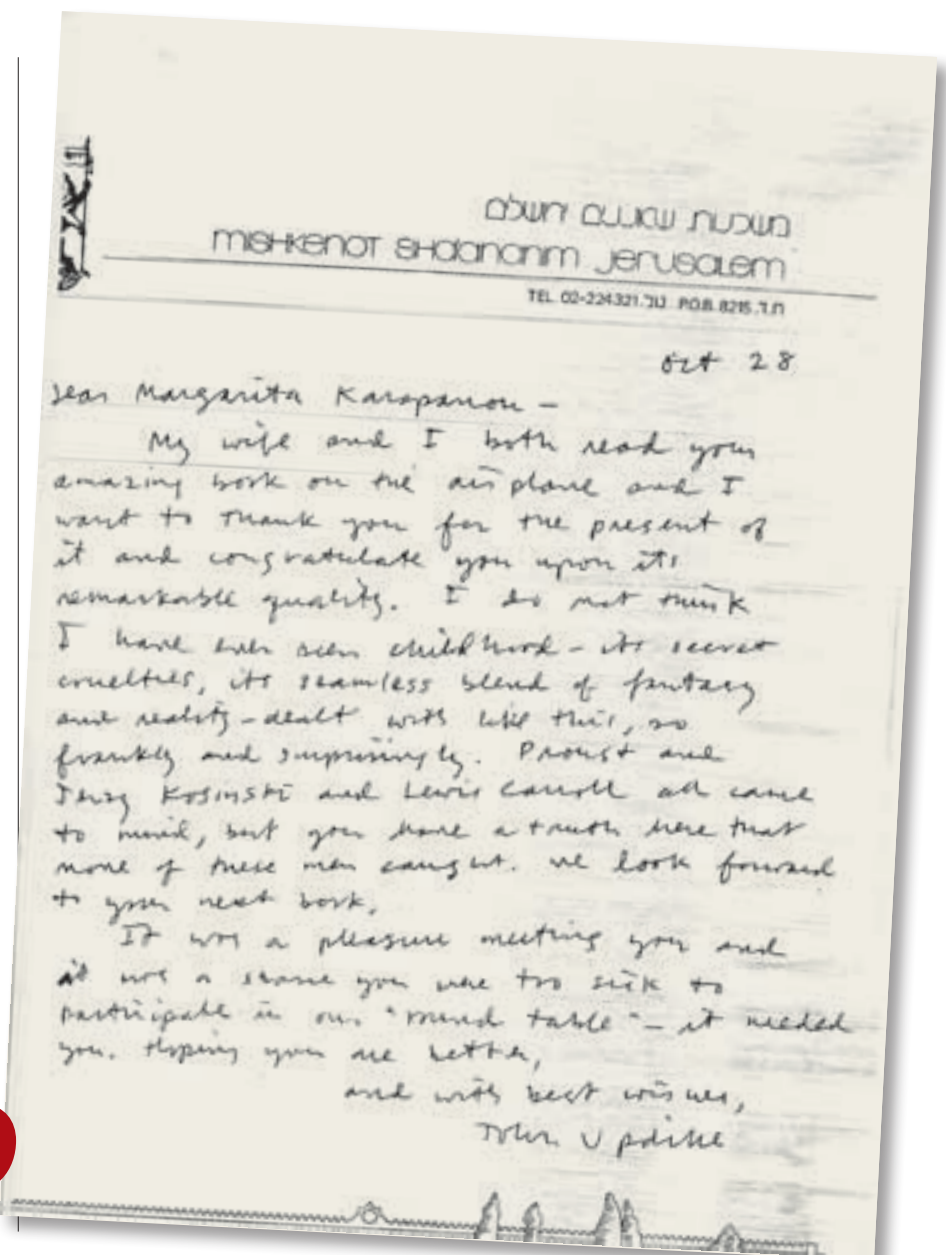 משכנות שאננים ירושלים
MISHKENOT SHA'ANANIM JERUSALEM
TEL. 02-224321.טל. P.O.B. 8215.ת.ד
Oct 28
Dear Margarita Karapanou —
My wife and I both read your
amazing book on the airplane and I
want to thank you for the present of
it and congratulate you upon its
remarkable quality. I do not think
I have ever seen childhood - its secret
cruelties, its seamless blend of fantasy
and reality - dealt with like this, so
frankly and surprisingly. Proust and
Jerzy Kosinski and Lewis Carroll all came
to mind, but you have a truth here that
none of these men caught. We look forward
to your next book.
It was a pleasure meeting you and
it was a shame you were too sick to
participate in our "round table" - it needed
you. Hoping you are better,
and with best wishes,
John Updike